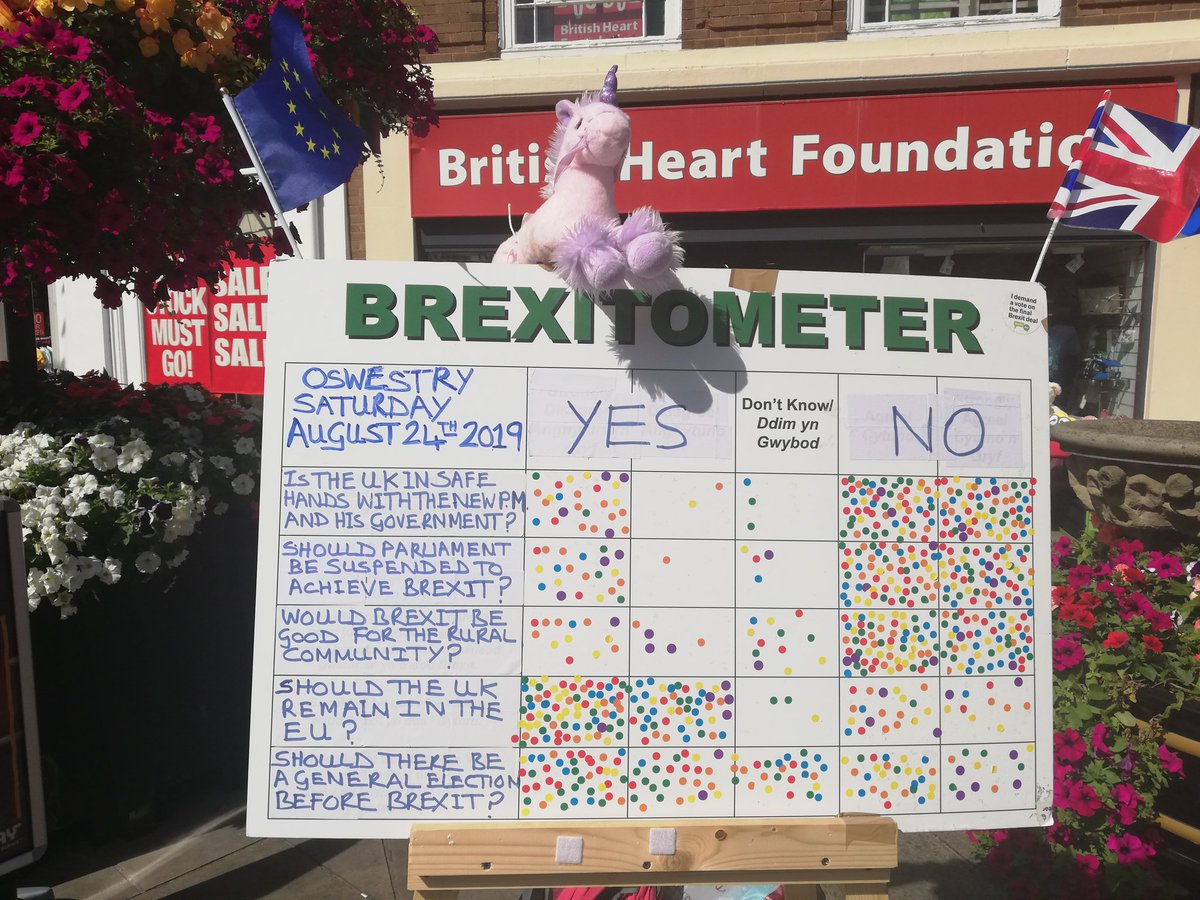 British Heart
British Heart Foundatio
STOCK
MUST
GO!
SALE
SALE
SALE
BREXITOMETER
I demand
a vote on
the final
Brexit deal
OSWESTRY
SATURDAY
AUGUST 24TH 2019
YES
Don't Know/
Ddim yn
Gwybod
NO
IS THE UK IN SAFE
HANDS WITH THE NEW P.M
AND HIS GOVERNMENT?
SHOULD PARLIAMENT
BE SUSPENDED TO
ACHIEVE BREXIT?
WOULD BREXIT BE
GOOD FOR THE RURAL
COMMUNITY?
SHOULD THE UK
REMAIN IN THE
EU?
SHOULD THERE BE
A GENERAL ELECTION
BEFORE BREXIT?